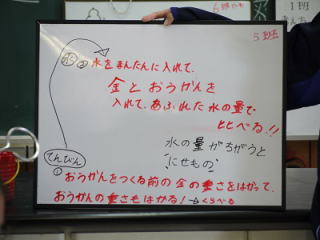 5班
1班
水 ② 水をまんたんに入れて、
金とおうかんを
入れて、あふれた水の量で
くらべる!!
水の量がちがうと
にせもの
てんびん
① おうかんをつくる前の金の重さをはかって、
おうかんの重さもはかる! → くらべる